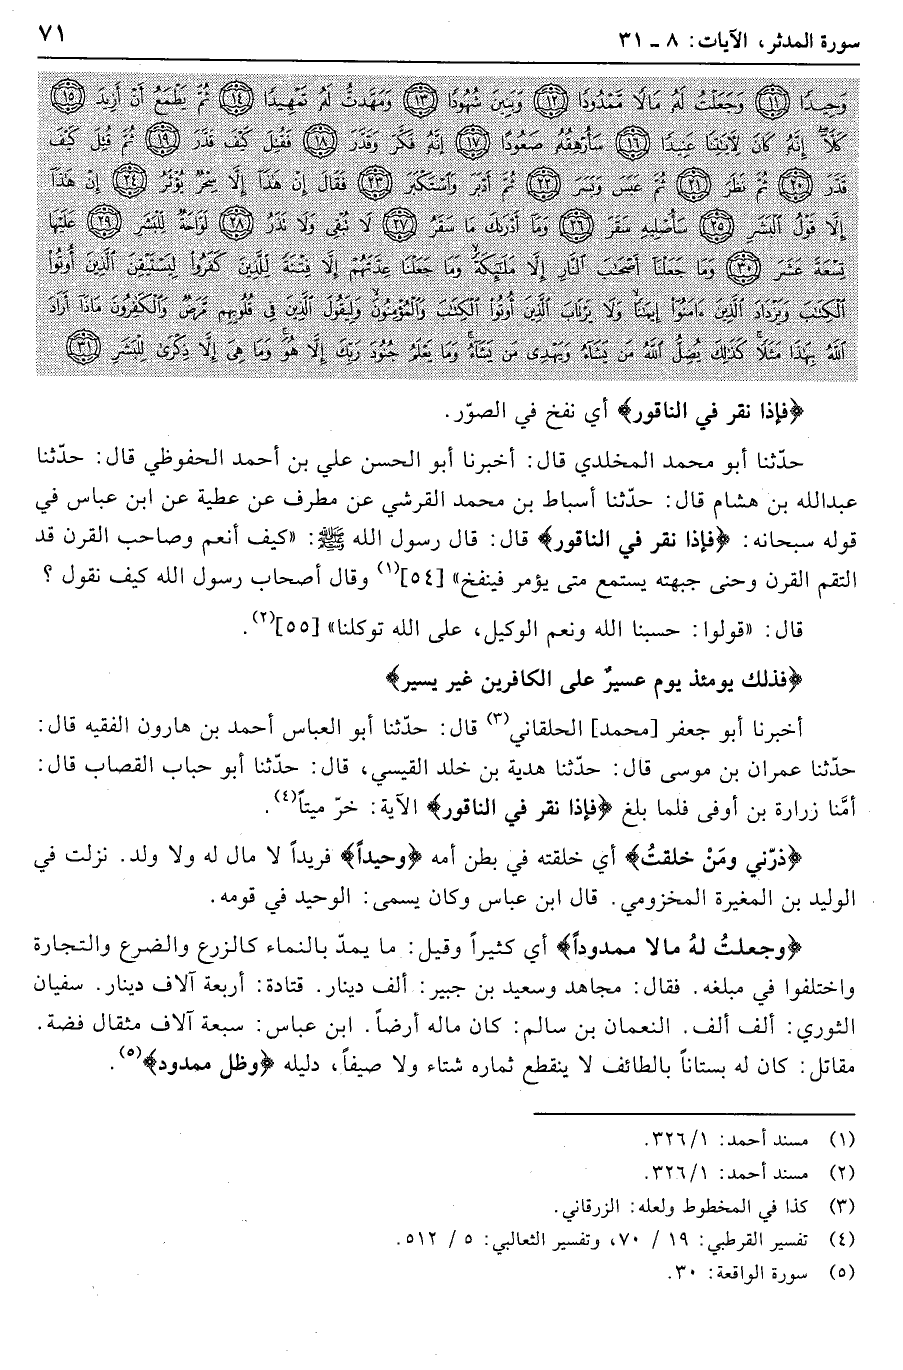 سورة المدثر، الآيات: ٨ ـ ٣١
٧١
وَحِيدًا ﴿١١﴾ وَجَعَلْتُ لَهُ مَالًا مَّمْدُودًا ﴿١٢﴾ وَبَنِينَ شُهُودًا ﴿١٣﴾ وَمَهَّدتُّ لَهُ تَمْهِيدًا ﴿١٤﴾ ثُمَّ يَطْمَعُ أَنْ أَزِيدَ ﴿١٥﴾
كَلَّا إِنَّهُ كَانَ لِآيَاتِنَا عَنِيدًا ﴿١٦﴾ سَأُرْهِقُهُ صَعُودًا ﴿١٧﴾ إِنَّهُ فَكَّرَ وَقَدَّرَ ﴿١٨﴾ فَقُتِلَ كَيْفَ قَدَّرَ ﴿١٩﴾ ثُمَّ قُتِلَ كَيْفَ
قَدَّرَ ﴿٢٠﴾ ثُمَّ نَظَرَ ﴿٢١﴾ ثُمَّ عَبَسَ وَبَسَرَ ﴿٢٢﴾ ثُمَّ أَدْبَرَ وَاسْتَكْبَرَ ﴿٢٣﴾ فَقَالَ إِنْ هَذَا إِلَّا سِحْرٌ يُؤْثَرُ ﴿٢٤﴾ إِنْ هَذَا
إِلَّا قَوْلُ الْبَشَرِ ﴿٢٥﴾ سَأُصْلِيهِ سَقَرَ ﴿٢٦﴾ وَمَا أَدْرَاكَ مَا سَقَرُ ﴿٢٧﴾ لَا تُبْقِي وَلَا تَذَرُ ﴿٢٨﴾ لَوَّاحَةٌ لِّلْبَشَرِ ﴿٢٩﴾ عَلَيْهَا
تِسْعَةَ عَشَرَ ﴿٣٠﴾ وَمَا جَعَلْنَا أَصْحَابَ النَّارِ إِلَّا مَلَائِكَةً وَمَا جَعَلْنَا عِدَّتَهُمْ إِلَّا فِتْنَةً لِّلَّذِينَ كَفَرُوا لِيَسْتَيْقِنَ الَّذِينَ أُوتُوا
الْكِتَابَ وَيَزْدَادَ الَّذِينَ آمَنُوا إِيمَانًا وَلَا يَرْتَابَ الَّذِينَ أُوتُوا الْكِتَابَ وَالْمُؤْمِنُونَ وَلِيَقُولَ الَّذِينَ فِي قُلُوبِهِم مَّرَضٌ وَالْكَافِرُونَ مَاذَا أَرَادَ
اللَّهُ بِهَذَا مَثَلًا كَذَلِكَ يُضِلُّ اللَّهُ مَن يَشَاءُ وَيَهْدِي مَن يَشَاءُ وَمَا يَعْلَمُ جُنُودَ رَبِّكَ إِلَّا هُوَ وَمَا هِيَ إِلَّا ذِكْرَى لِلْبَشَرِ ﴿٣١﴾
﴿فإذا نقر في الناقور﴾ أي نفخ في الصوّر.
حدّثنا أبو محمد المخلدي قال: أخبرنا أبو الحسن علي بن أحمد الحفوظي قال: حدّثنا
عبدالله بن هشام قال: حدّثنا أسباط بن محمد القرشي عن مطرف عن عطية عن ابن عباس في
قوله سبحانه: ﴿فإذا نقر في الناقور﴾ قال: قال رسول الله ﷺ: «كيف أنعم وصاحب القرن قد
التقم القرن وحنى جبهته يستمع متى يؤمر فينفخ» [٥٤](١) وقال أصحاب رسول الله كيف نقول ؟
قال: «قولوا: حسبنا الله ونعم الوكيل، على الله توكلنا» [٥٥](٢).
﴿فذلك يومئذ يوم عسيرٌ على الكافرين غير يسير﴾
أخبرنا أبو جعفر [محمد] الحلقاني(٣) قال: حدّثنا أبو العباس أحمد بن هارون الفقيه قال:
حدّثنا عمران بن موسى قال: حدّثنا هدية بن خلد القيسي، قال: حدّثنا أبو حباب القصاب قال:
أمَّنا زرارة بن أوفى فلما بلغ ﴿فإذا نقر في الناقور﴾ الآية: خرّ ميتاً(٤).
﴿ذرّني ومَنْ خلقتُ﴾ أي خلقته في بطن أمه ﴿وحيداً﴾ فريداً لا مال له ولا ولد. نزلت في
الوليد بن المغيرة المخزومي. قال ابن عباس وكان يسمى: الوحيد في قومه.
﴿وجعلتُ لهُ مالا ممدوداً﴾ أي كثيراً وقيل: ما يمدّ بالنماء كالزرع والضرع والتجارة
واختلفوا في مبلغه. فقال: مجاهد وسعيد بن جبير: ألف دينار. قتادة: أربعة آلاف دينار. سفيان
الثوري: ألف ألف. النعمان بن سالم: كان ماله أرضاً. ابن عباس: سبعة آلاف مثقال فضة.
مقاتل: كان له بستاناً بالطائف لا ينقطع ثماره شتاء ولا صيفاً، دليله ﴿وظل ممدود﴾(٥).
(١) مسند أحمد: ١/ ٣٢٦.
(٢) مسند أحمد: ١/ ٣٢٦.
(٣) كذا في المخطوط ولعله: الزرقاني.
(٤) تفسير القرطبي: ١٩ / ٧٠، وتفسير الثعالبي: ٥ / ٥١٢.
(٥) سورة الواقعة: ٣٠.